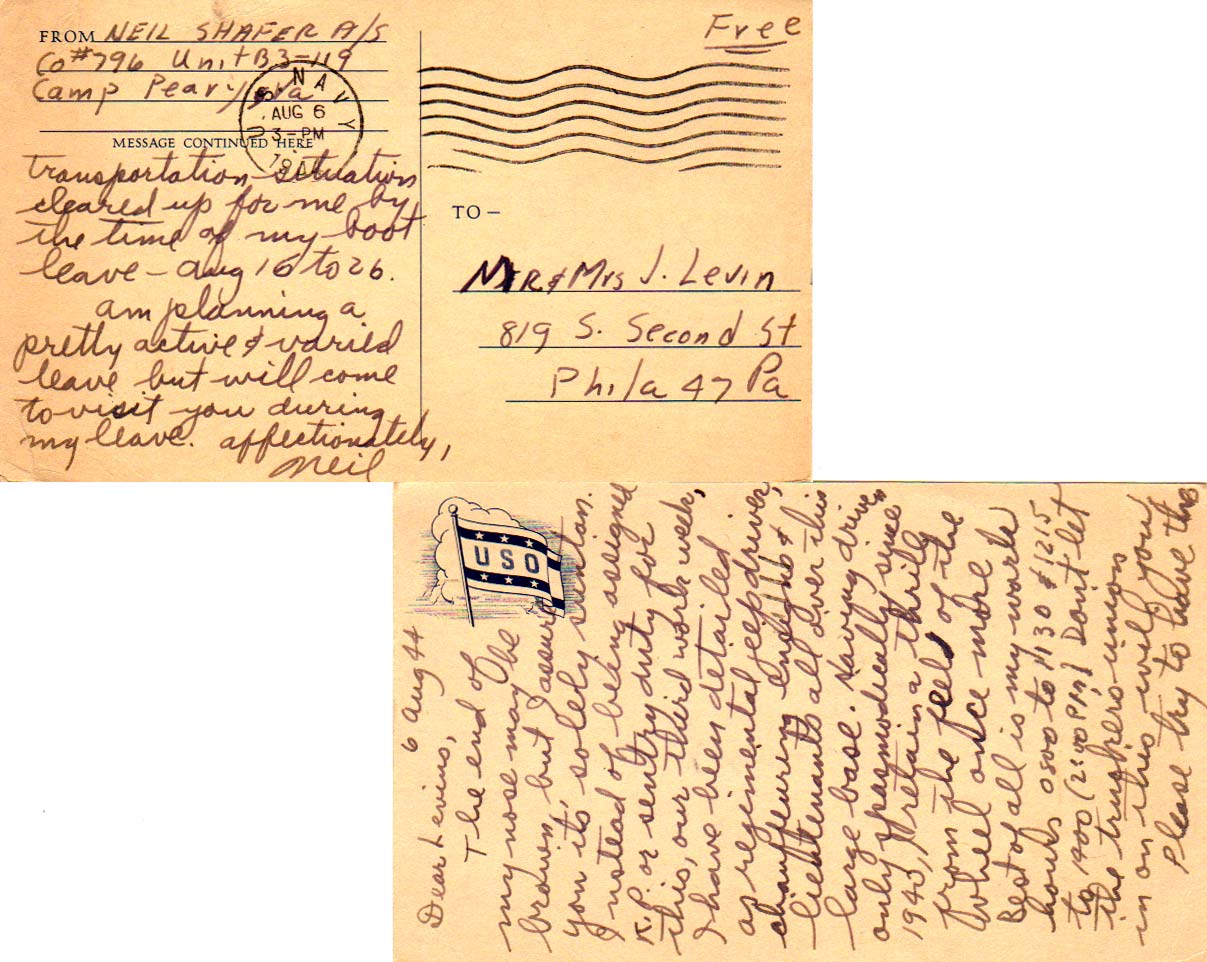 FROM NEIL SHAFER A/S
Co #796 Unit B3-119
Camp Peary, Va
Free
U.S. NAVY
AUG 6
3-PM
MESSAGE CONTINUED HERE
transportation situation
cleared up for me by
the time of my boot
leave - Aug 16 to 26.
Am planning a
pretty active & varied
leave but will come
to visit you during
my leave. Affectionately,
Neil
TO -
MR & Mrs J. Levin
819 S. Second St
Phila 47 Pa
USO
6 Aug 44
Dear Levins,
The end of
my nose may be
brown, but I assure
you its solely suntan.
Instead of being assigned
K.P. or sentry duty for
this, our third work week,
I have been detailed
as regimental jeep driver,
chauffeuring &
lieutenants all over this
large base. Having driven
only spasmodically since
1940, I retain a thrill
from the feel of the
wheel once more
Best of all is my work
hours 0800 to 1130 & 1215
to 1400 (2:00 PM) Dont let
the truckers union
in on this will you
Please try to have the